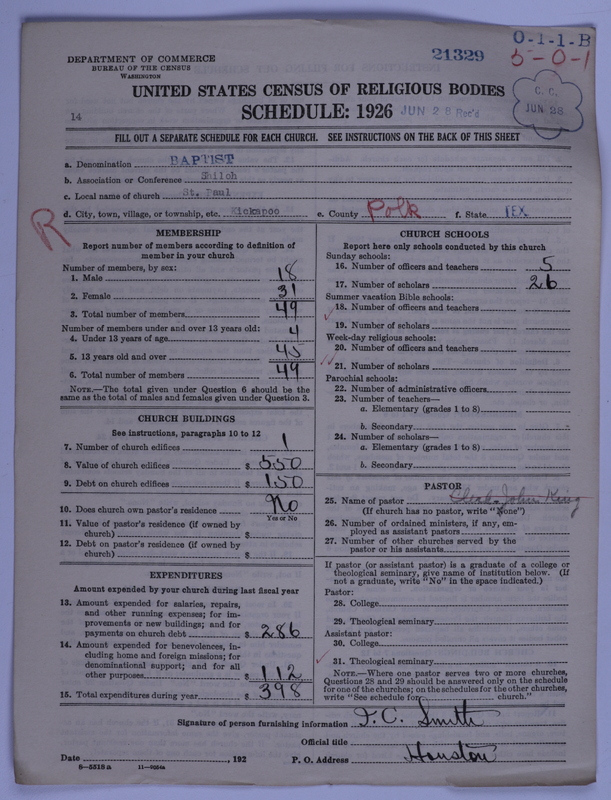 DEPARTMENT OF COMMERCE
BUREAU OF THE CENSUS
WASHINGTON
21329
0-1-1-B
5-0-1
UNITED STATES CENSUS OF RELIGIOUS BODIES
SCHEDULE: 1926
JUN 28 Rec'd
C. C.
JUN 28
14
FILL OUT A SEPARATE SCHEDULE FOR EACH CHURCH. SEE INSTRUCTIONS ON THE BACK OF THIS SHEET
a. Denomination BAPTIST
b. Association or Conference Shiloh
c. Local name of church St. Paul
d. City, town, village, or township, etc. Kickapoo e. County Polk f. State TEX
R
MEMBERSHIP
Report number of members according to definition of
member in your church
Number of members, by sex:
1. Male 18
2. Female 31
3. Total number of members 49
Number of members under and over 13 years old:
4. Under 13 years of age 4
5. 13 years old and over 45
6. Total number of members 49
NOTE.—The total given under Question 6 should be
same as the total of males and females given under Question 3.
CHURCH BUILDINGS
See instructions, paragraphs 10 to 12
7. Number of church edifices 1
8. Value of church edifices $ 550
9. Debt on church edifices $ 150
10. Does church own pastor's residence No
Yes or No
11. Value of pastor's residence (if owned by
church) $
12. Debt on pastor's residence (if owned by
church) $
EXPENDITURES
Amount expended by your church during last fiscal year
13. Amount expended for salaries, repairs,
and other running expenses; for im-
provements or new buildings; and for
payments on church debt $ 286
14. Amount expended for benevolences, in-
cluding home and foreign missions; for
denominational support; and for all
other purposes $ 112
15. Total expenditures during year $ 398
CHURCH SCHOOLS
Report here only schools conducted by this church
Sunday schools:
16. Number of officers and teachers 5
17. Number of scholars 26
Summer vacation Bible schools:
18. Number of officers and teachers
19. Number of scholars
Week-day religious schools:
20. Number of officers and teachers
21. Number of scholars
Parochial schools:
22. Number of administrative officers
23. Number of teachers—
a. Elementary (grades 1 to 8)
b. Secondary
24. Number of scholars—
a. Elementary (grades 1 to 8)
b. Secondary
PASTOR
25. Name of pastor John King
(If church has no pastor, write "None")
26. Number of ordained ministers, if any, em-
ployed as assistant pastors
27. Number of other churches served by the
pastor or his assistants
If pastor (or assistant pastor) is a graduate of a college or
theological seminary, give name of institution below. (If
not a graduate, write "No" in the space indicated.)
Pastor:
28. College
29. Theological seminary
Assistant pastor:
30. College
31. Theological seminary
NOTE.—Where one pastor serves two or more churches,
Questions 28 and 29 should be answered only on the schedule
for one of the churches; on the schedules for the other churches,
write "See schedule for church."
Signature of person furnishing information F. C. Smith
Official title
Date , 192 P. O. Address Houston
8-5518a 11-9054a